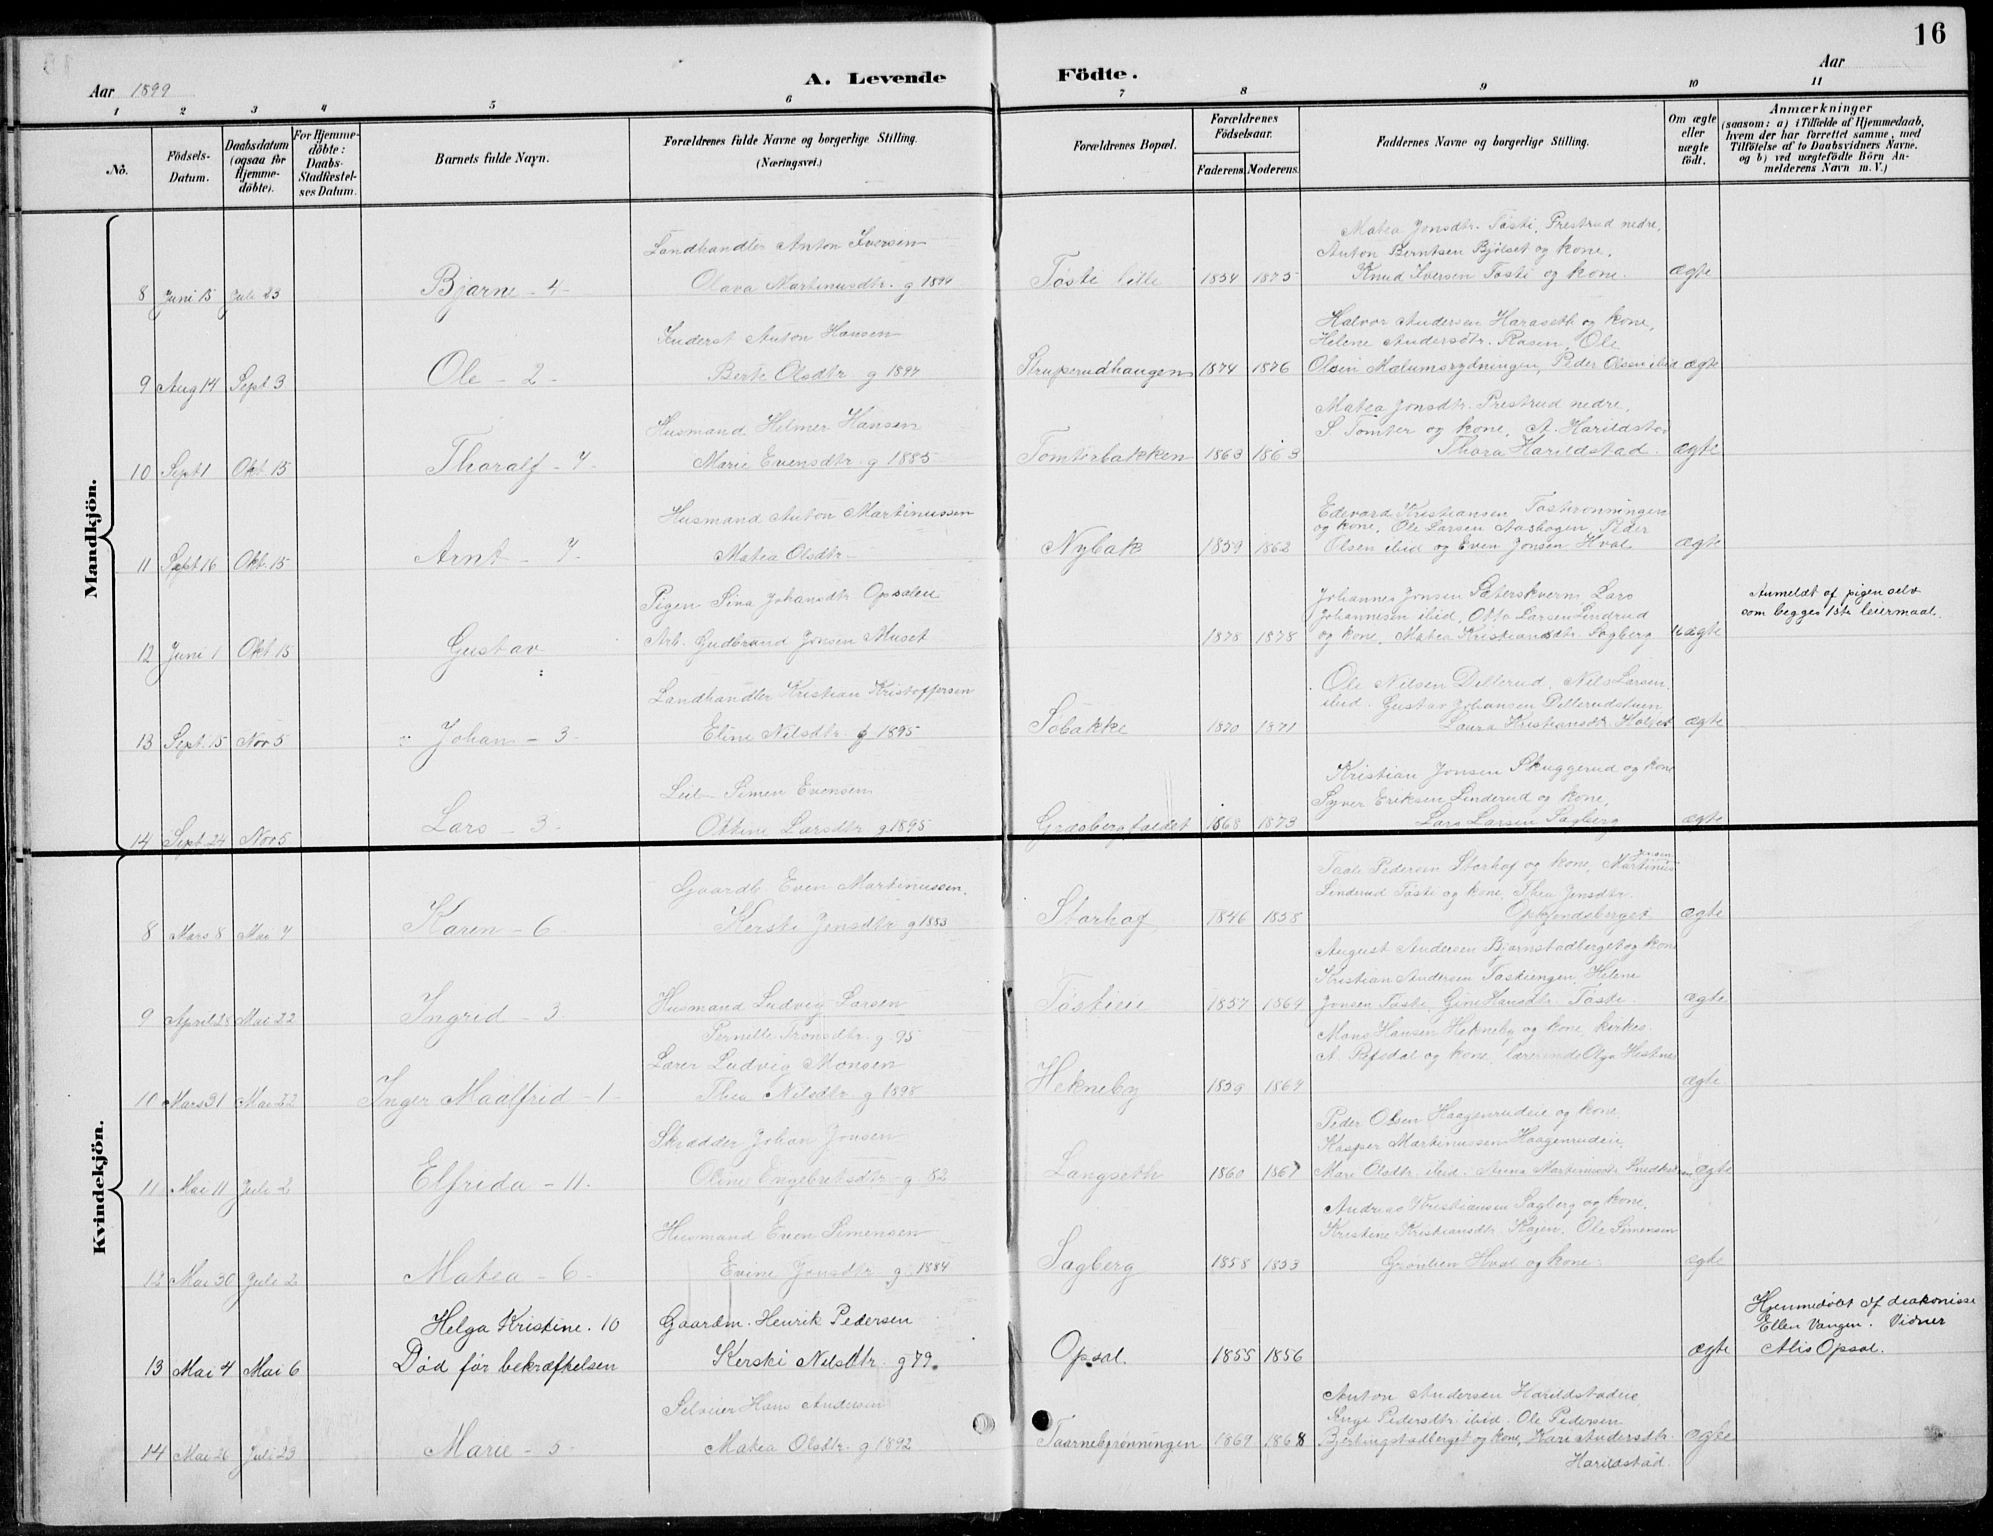 16
A. Levende Födte.
Aar 1899
Aar
1 2 3 4 5 6 7 8 9 10 11
No.
Födsels-Datum.
Daabsdatum (ogsaa for Hjemme-döbte).
For Hjemme-döbte: Daabs-Stadfæstel-ses Datum.
Barnets fulde Navn.
Forældrenes fulde Navne og borgerlige Stilling. (Næringsvei.)
Forældrenes Bopæl.
Forældrenes Födselsaar.
Faderens. Moderens.
Faddernes Navne og borgerlige Stilling.
Om ægte eller uægte födt.
Anmærkninger
(saasom: a) i Tilfælde af Hjemmedaab,
hvem der har forrettet samme, med
Tilföielse af to Daabsvidners Navne.
og b) ved uægtefödte Börn An-
melderens Navn m. V.)
Mandkjön.
Landhandler Anton Iversen
Olava Martinusdtr. g 1894
8 Juni 15 Juli 23 Bjarne - 4 -
Tøsti lille 1854 1875
Matea Jonsdtr. Tøsti, Prestrud nedre,
Anton Berntsen Bjølset og kone,
Knud Iversen Tøsti og kone. ægte
Inderst Anton Hansen
Berte Olsdtr g 1897
9 Aug 14 Sept 3 Ole - 2 -
Struperudhaugen 1874 1876
Halvor Andersen Haraseth og kone,
Helene Andersdtr. Rosen, Ole
Olsen Malumsrydningen, Peder Olsen ibid ægte
Husmand Helmer Hansen
Marie Evensdtr g 1885
10 Sept 1 Okt. 15 Thoralf - 7 -
Tomterbakken 1863 1863
Matea Jonsdtr. Prestrud nedre,
S. Tomter og kone, A. Harildstad
Thora Harildstad. ægte
Husmand Anton Martinussen
Matea Olsdtr
11 Sept 16 Okt. 15 Arnt - 7
Nybak 1859 1862
Edevard Kristiansen Tøstirønningen
og kone, Ole Larsen Aashagen, Peder
Olsen ibid og Even Jonsen Hval ægte
Pigen Sina Johansdtr. Opsalen
Arb. Gudbrand Jonsen Muset
12 Juni 1 Okt 15 Gustav
1878 1878
Johannes Jonsen Sæterskvern, Lars
Johannesen ibid, Otto Larsen Linderud
og kone, Matea Kristiansdtr. Sagberg uægte
Anmeldt af pigen selv
som begges 1ste leiermaal.
Landhandler Kristian Kristoffersen
Eline Nilsdtr. g 1895
13 Sept. 15 Nov 5 Johan - 3 -
Søbakke 1870 1871
Ole Nilsen Dillerud, Nils Larsen
ibid. Gustav Johansen Dillerudstuen
Laura Kristiansdtr. ægte
Simen Evensen
Oline Larsdtr g 1895
14 Sept 24 Nov 5 Lars - 3 -
1868 1873
Kristian Jonsen Skuggerud og kone
Syver Eriksen Linderud og kone,
Lars Larsen Sagberg ægte
Kvindekjön.
Gaardb. Even Martinussen.
Kersti Jensdtr g 1883
8 Mars 8 Mai 7 Karen - 6
Storhof 1846 1858
Pedersen Storhof og kone, Martinus Jensen
Linderud Tøsti og kone, Thea Jensdtr.
ægte
Husmand Ludvig Larsen
Pernille Tronsdtr. g 95
9 April 28 Mai 22 Ingrid - 3
Tøstiei 1857 1869
August Andersen Bjørnstadberget og kone
Kristian Andersen Tøstiengen, Helene
Jonsen Tøsti, Gine Hansdtr. Tøsti. ægte
Lærer Ludvig Monsen
Thea Nilsdtr. g 1898
10 Mars 31 Mai 22 Inger Maalfrid - 1 -
Hekneby 1859 1869
Mons Hansen Hekneby og kone, kirkes.
A. Refsdal og kone, lærerinde Olga
ægte
Skrædder Johan Jonsen
Oline Engebretsdtr g 82
11 Mai 11 Juli 2 Elfrida - 11 -
Langseth 1860 1861
Peder Olsen Haagenrudeie og kone,
Kasper Martinussen Haagenrudeie,
Mari Olsdtr ibid. Anna Martinusdtr ægte
Husmand Even Simensen
Evine Jonsdtr g 1884
12 Mai 30 Juli 2 Matea - 6 -
Sagberg 1858 1853
Andreas Kristiansen Sagberg og kone,
Kristine Kristiansdtr. Kojen, Ole Simensen
Grønlien Hval og kone. ægte
Helga Kristine. 10 Gaardm. Henrik Pedersen
13 Mai 4 Mai 6 Død før bekræftelsen Kersti Nilsdtr. g 79.
Opsal. 1855 1856 ægte
Hjemmedøbt af diakonisse
Ellen Vangen. Vidner
Alis Opsal.
Selveier Hans Andersen
Matea Olsdtr g 1892
14 Mai 26 Juli 23 Marie - 5 -
Taarnebyrønningen 1869 1868
Anton Andersen Harildstadeie,
Inge Pedersdtr. ibid. Ole Pedersen
Bjerlingstadberget og kone, Kari Andersdtr. ægte
Harildstad.